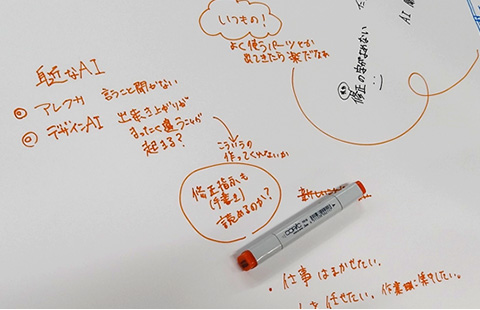 いつもの!
よく使うパーツとか
出てきたら楽だなぁ
身近なAI
◎ アレクサ 言うこと聞かない
◎ デザインAI 出来き上がりが
まったく違うことが
起きる?
こういうの
作ってくれないか
修正指示も
(手書き)
読めるのか?
修正の字がよめない
AI
COPIC
・仕事はまかせたい。
任せたい。作業に集中したい。